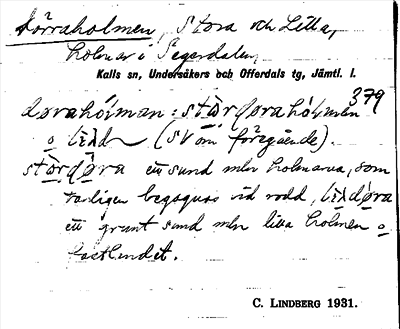 Dörraholmen, Stora och Lilla,
holmar i Segerdalen,
Kalls sn, Undersåkers och Offerdals tg, Jämtl. l.
379
dørahó̀lman : stó̀rdørahólmen
o lìżl (sv om föregående).
stó̀rdøra ett sund mln holmarna, som
vanligen begagnas vid rodd, lìżldøra
ett grunt sund mln lilla holmen o
fastlandet.
C. LINDBERG 1931.